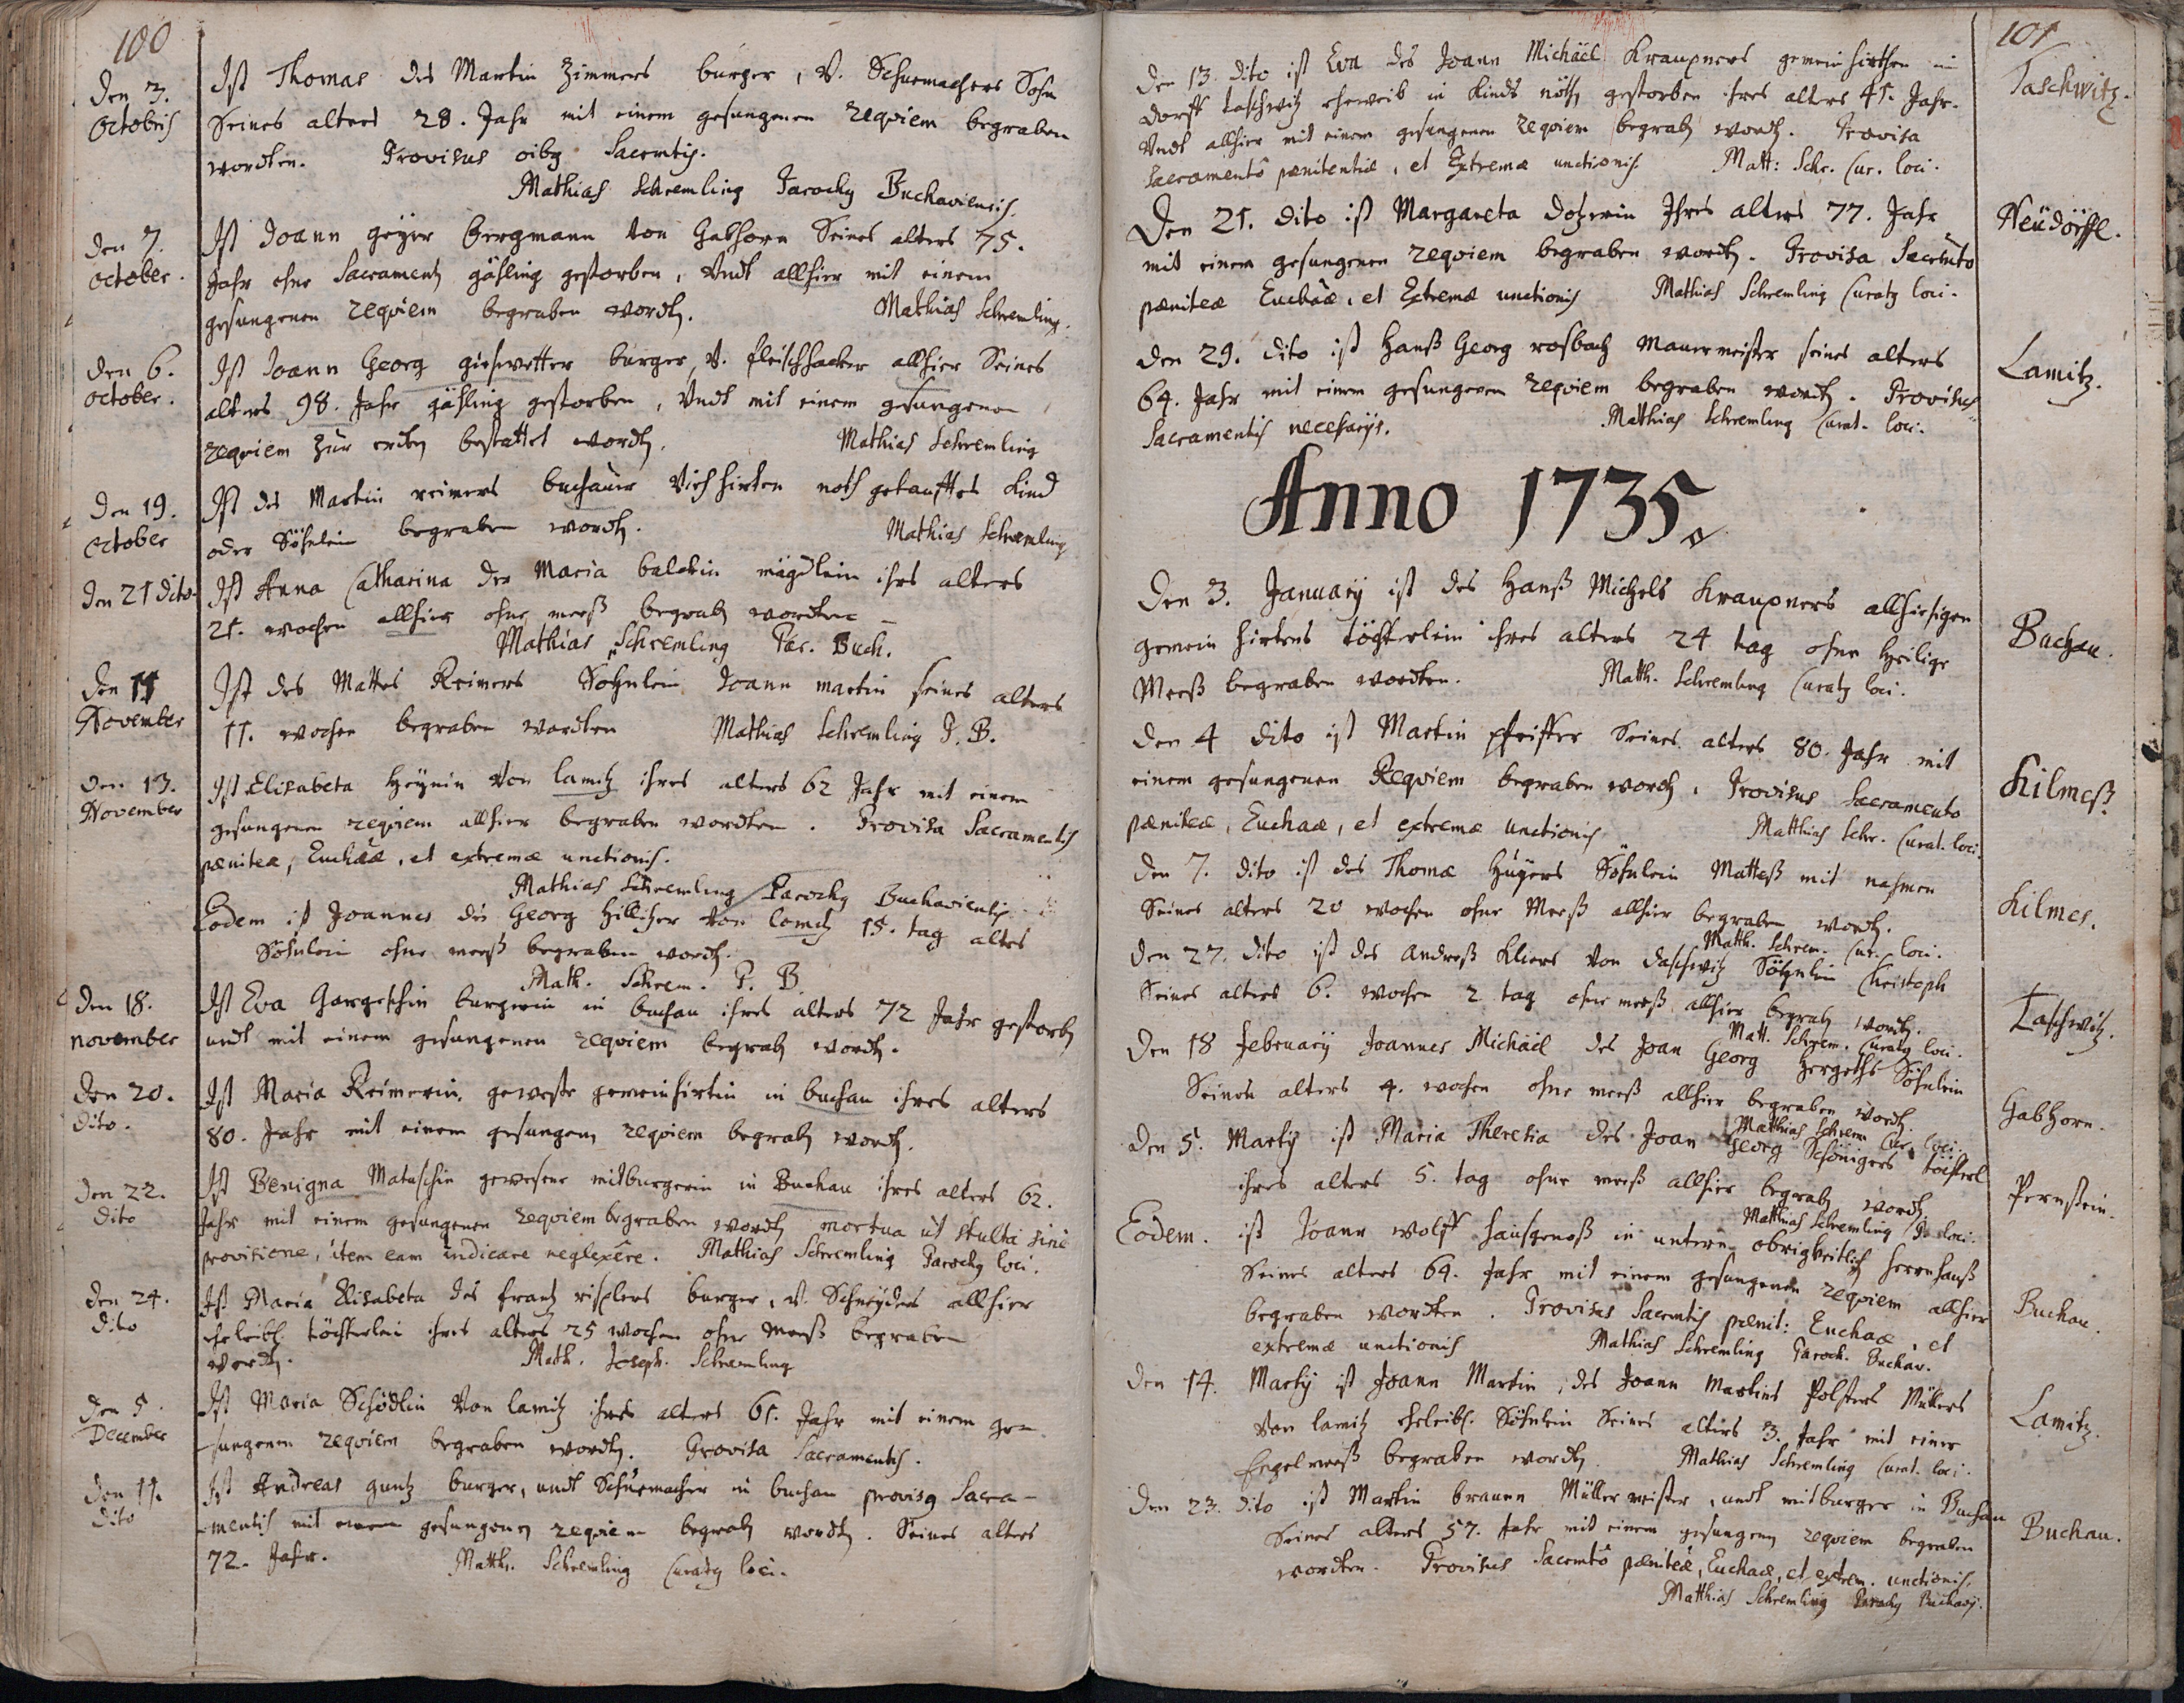 100
Den 3. Octobris
Ist Thomas des Martin Zimmers burger, V. Schuemachers Sohn
Seines alters 28. Jahr mit einem gesungenen requiem begraben
wordten. Provisus oibq Sacrmtis.
Mathias Schremling Parochq Buchaviensis.
Den 7. October.
Ist Joann geyer bergmann von Gabhorn Seines alters 75.
Jahr ohne Sacrament gähling gestorben, Undt allhier mit einem
gesungenen requiem begraben wordten.
Mathias Schremling.
Den 6. October.
Ist Joann Georg burger, V. fleischhacker allhier Seines
alters 98. Jahr gähling gestorben, Undt mit einem gesungenen
requiem zur erden bestattet wordten.
Mathias Schremling
Den 19. October
Ist des Martin reimers buchauer Viehhirten noth getaufftes Kind
oder Söhnlein begraben wordten.
Mathias Schremling
Den 21 dito
Ist Anna Catharina der Maria mägdlein ihres alters
21. wochen allhier ohne meeß begraben wordten
Mathias Schremling Par. Buch.
Den 11 November
Ist des Mattes Reimers Sohnlein Joann martin seines alters
11. wochen begraben wordten Mathias Schremling P. B.
Den 13. November
Ist Elisabeta Heynin von lamitz ihres alters 62 Jahr mit einem
gesungenen requiem allhier begraben wordten. Provisa Sacramentis
pænitea, Euchaæ, et extremæ unctionis.
Mathias Schremling Parochq Buchaviensis
Eodem ist Joannes des Georg von lomitz 15. tag altes
Söhnlein ohne meeß begraben wordten.
Math. Schrem. P. B.
Den 18. november
Ist Eva burgerin in buchau ihres alters 72 Jahr gestorben
undt mit einem gesungenen requiem begraben wordten.
Den 20. dito.
Ist Maria Reimerin, geweste gemeinhirtin in buchau ihres alters
80. Jahr mit einem gesungenen requiem begraben wordten.
Den 22. dito
Ist Benigna Matuschin gewesene mitburgerin in Buchau ihres alters 62.
Jahr mit einem gesungenen requiem begraben wordten mortua ut stulta sine
provisione, item eam indicare neglexere. Mathias Schremling Parochq loci.
Den 24. dito
Ist Maria Elisabeta des frantz burger, V. Schneyders allhier
eheleibl. töchterlein ihres alters 25 wochen ohne Meeß begraben
wordten. Math. Joseph. Schremling
Den 5. December
Ist Maria Schödlin von lamitz ihres alters 61. Jahr mit einem ge=
sungenem requiem begraben wordten. Provisa Sacramentis.
Den 11. dito
Ist Andreas guntz burger, undt Schuemacher in buchau provisq Sacra=
mentis mit gesungenen requiem begraben wordten. Seines alters
72. Jahr. Matth. Schremling Curatq loci.
101
Den 13. dito ist Eva des Joann Michäel Kraupners gemein hirthen im
dorff taschwitz eheweib in Kinds nöthen gestorben ihres alters 41. Jahr.
Undt allhier mit einem gesungenen requiem begraben wordten. Provisa
Sacramento pænitentiæ, et Extremæ unctionis. Matt: Schr. Cur. loci.
Taschwitz.
Den 21. dito ist Margareta Ihres alters 77. Jahr
mit einem gesungenen requiem begraben wordten. Provisa Sacrmto
pæniteæ Euchaæ, et Extremæ unctionis Mathias Schremling Curatq loci.
Neüdörffl.
Den 29. dito ist Hanß Georg rosbach Mauermeister seines alters
64. Jahr mit einem gesungenen requiem begraben wordten. Provisus
Sacramentis necessarijs. Matthias Schremling Curat. loci.
Lamitz.
Anno 1735.
Den 3. January ist des Hanß Michels Kraupners allhiesigen
gemein hirtens töchterlein ihres alters 24 tag ohne heilige
Meeß begraben wordten. Matth. Schremling Curatq loci.
Buchau.
Den 4 dito ist Martin pfeiffer Seines alters 80. Jahr mit
einem gesungenen Requiem begraben wordten. Provisus Sacramento
pæniteæ, Euchaæ, et extremæ unctionis Matthias Schr. Curat. loci.
Kilmeß.
Den 7. dito ist des Thomæ Söhnlein Matteß mit nahmen
Seines alters 20 wochen ohne Meeß allhier begraben wordten.
Matth. Schrem. Cur. loci.
Kilmes.
Den 27. dito ist des Andreß Kliers von daschwitz Söhnlein Christoph
Seines alters 6. wochen 2 tag ohne meeß allhier begraben wordten.
Matt. Schrem. Curatq loci.
Taschwitz.
Den 18 February Joannes Michäel des Joan Georg Hergeths Söhnlein
Seines alters 4. wochen ohne meeß allhier begraben wordten.
Matthias Schrem Cur. loci.
Gabhorn.
Den 5. Martij ist Maria Theresia des Joan Georg Schönigers töchterl
ihres alters 5. tag ohne meeß allhier begraben wordten.
Matthias Schremling P. loci.
Pernstein.
Eodem. ist Joann wolff hausgenoß in untern obrigkeitlich herrnhauß
Seines alters 64. Jahr mit einem gesungenen requiem allhier
begraben wordten. Provisus Sacrmtis pænit: Euchaæ, et
extremæ unctionis Mathias Schremling Paroch. Buchav.
Buchau.
Den 14. Martij ist Joann Martin, des Joann Martins Polsters Müllers
von lamitz eheleibl. Söhnlein Seines alters 3. Jahr mit einer
Engelmeß begraben wordten. Mathias Schremling Curat. loci.
Lamitz.
Den 23. dito ist Martin braunn Müller meister, undt mitburger in Buchau
Seines alters 57. Jahr mit einem gesungenen requiem begraben
wordten. Provisus Sacrmto pæniteæ, Euchaæ, et extrem. unctionis.
Matthias Schremling Parochq Buchavij.
Buchau.